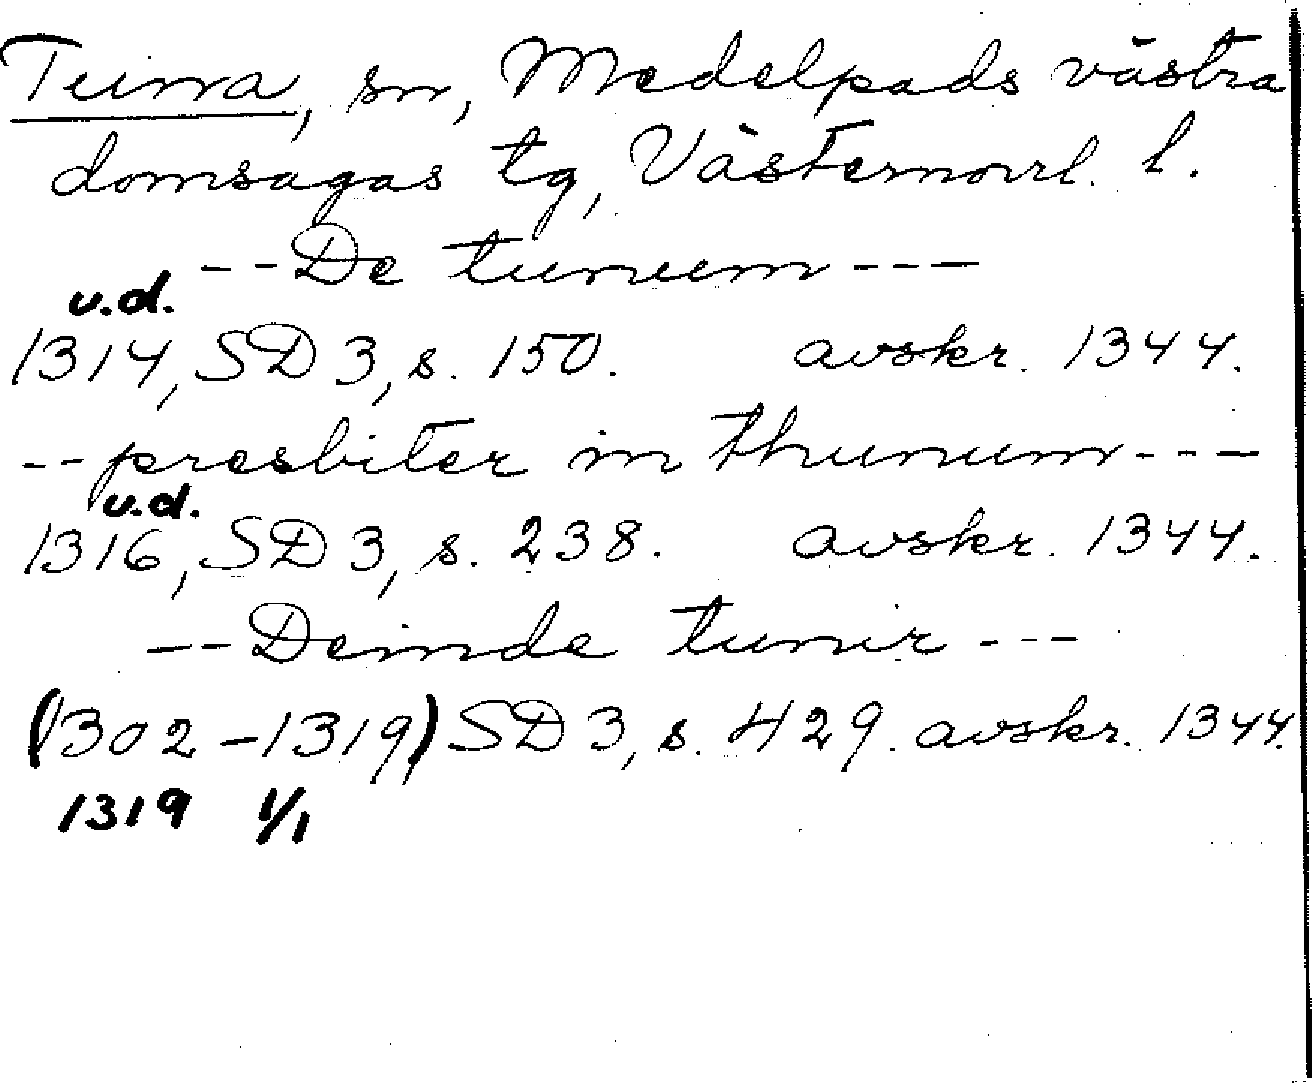 Tuna, sn, Medelpads västra
domsagas tg, Västernorrl. l.
--De tunum---
u.d.
1314, SD 3, s. 150. avskr. 1344.
--presbiter in thunum---
u.d.
1316, SD 3, s. 238. avskr. 1344.
--Deinde tunir---
(1302-1319) SD 3, s. 429. avskr. 1344.
1319 1/1